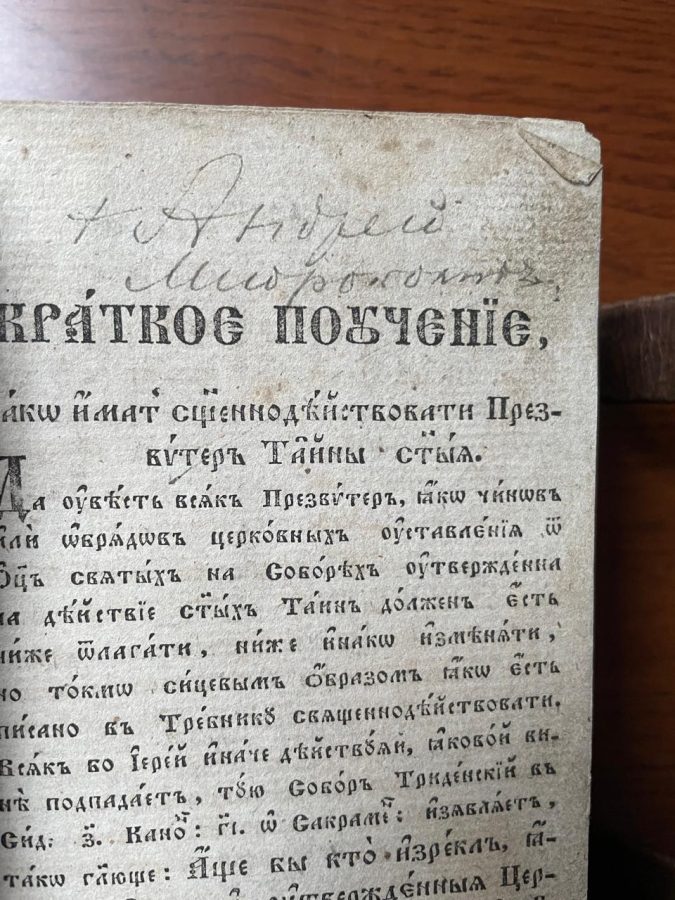 + Андрей
КРА́ТКОЕ ПОꙊЧЕНЇЕ,
ꙗ҆́кѡ и҆́мат̾ сщ҃еннодѣ́йствовати През-
вѵ́теръ Та̑йны ст҃ы́ѧ.
Да ѹ҆вѣ́сть всѧ́къ Презвѵ́теръ, ꙗ҆́кѡ чи́новъ
и҆лѝ ѡ҆брѧ́дѡвъ церко́вныхъ ѹ҆ставле́нїѧ ѿ
Ѻ҆ц҃ъ свѧты́хъ на Собо́рѣхъ ѹ҆твержде́нна
на дѣ́йствїе ст҃ы́хъ Та́инъ до́лженъ є҆́сть
ни́же ѿлага́ти, ни́же и҆на́кѡ и҆змѣнѧ́ти,
но то́кмѡ си́цевымъ ѻ҆́бразомъ ꙗ҆́кѡ є҆́сть
писано въ Тре́бникꙋ свѧщеннодѣ́йствовати.
Всѧ́къ бо І҆ере́й и҆на́че дѣ́йствꙋѧй, ꙗ҆ково́й ви-
нѣ̀ подпада́етъ, то́ю Собо́ръ Триде́нскїй въ
Сид: з҃. Кано́н: г҃і. ѡ҆ Сакраме́н: и҆з̾ѧвлѧ́етъ,
та́кѡ гл҃юще: А҆́ще бы кто̀ и҆зре́клъ, ꙗ҆́-
ѹ҆твержде́нныѧ Цер-